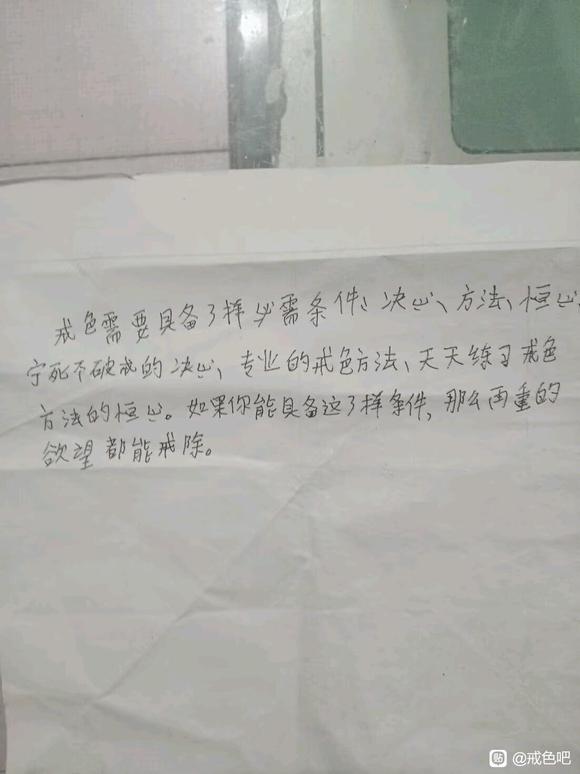 戒色需要具备3样必需条件：决心、方法、恒心
宁死不破戒的决心、专业的戒色方法、天天练习戒色
方法的恒心。如果你能具备这3样条件，那么再重的
欲望都能戒除。
贴 @戒色吧